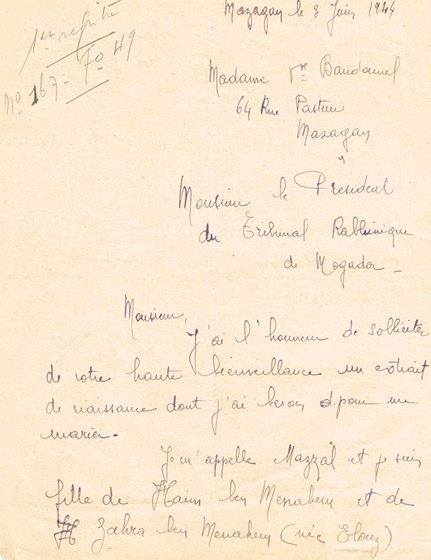 Mazagan le 3 Juin 1944
1er registre
No 167 - Fo 49
Madame Vve Bandamel
64 Rue Pasteur
Mazagan
à
Monsieur le Président
du Tribunal Rabbinique
de Mogador -
Monsieur,
J'ai l'honneur de solliciter
de votre haute bienveillance un extrait
de naissance dont j'ai besoin pour me
marier -
Je m'appelle Mazzal et je suis
fille de Haim ben Menahem et de
Zahra ben Menahem (née Elouz)